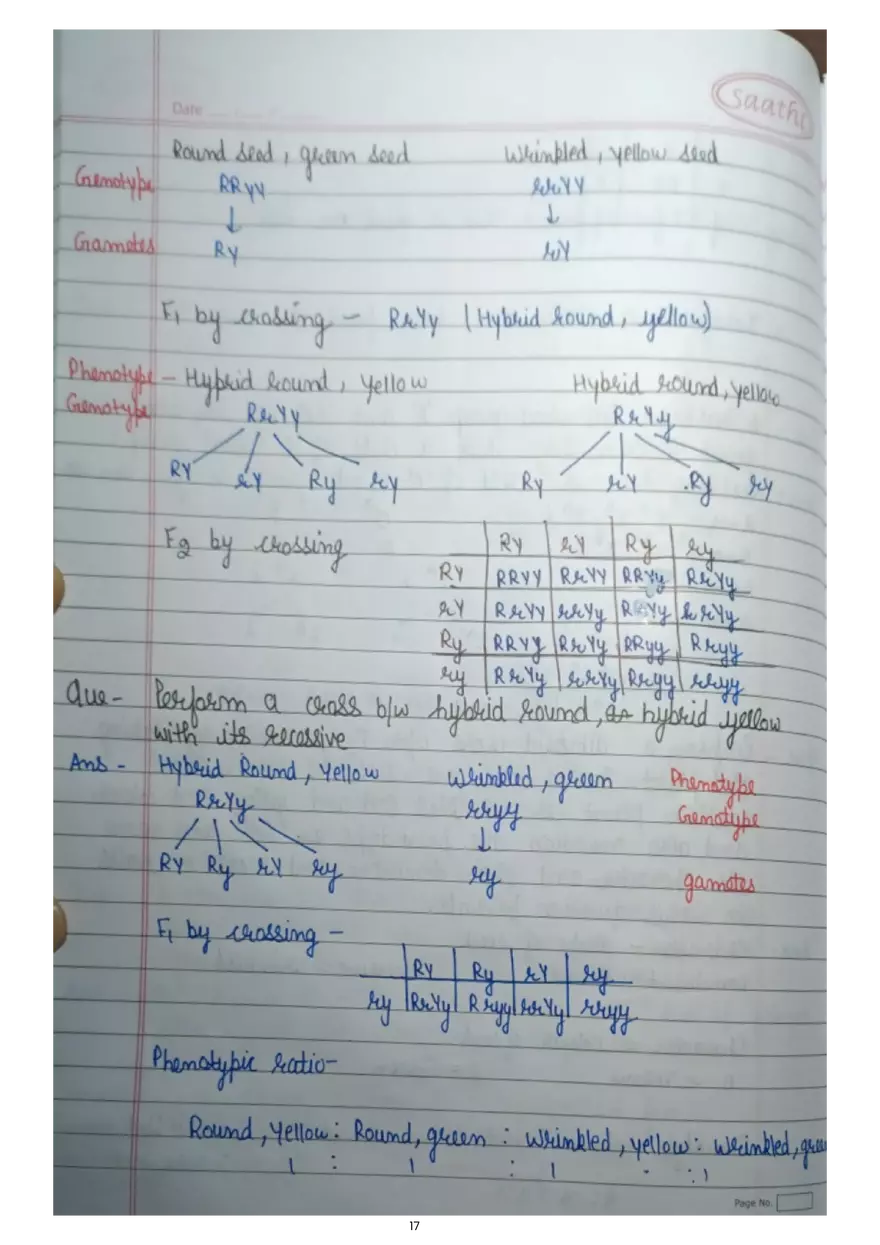 Saathi
Date
Round seed, green seed Wrinkled, yellow seed
Genotype RRyy rrYY
↓ ↓
Gametes Ry rY
F1 by crossing - RrYy (Hybrid round, yellow)
Phenotype - Hybrid Round, Yellow Hybrid round, yellow
Genotype RrYy RrYy
RY rY Ry ry Ry rY Ry ry
F2 by crossing RY rY Ry ry
RY RRYY RrYY RRYy RrYy
rY RrYY rrYy RrYy rrYy
Ry RRYy RrYy RRyy Rryy
ry RrYy rrYy Rryy rryy
Que - Perform a cross b/w hybrid round, hybrid yellow
with its recessive
Ans - Hybrid Round, Yellow Wrinkled, green Phenotype
RrYy rryy Genotype
↓
RY Ry rY ry ry gametes
F1 by crossing -
RY Ry rY ry
ry RrYy Rryy rrYy rryy
Phenotypic ratio-
Round, Yellow : Round, green : Wrinkled, yellow : Wrinkled, gree
1 : 1 : 1 : 1
Page No.
17